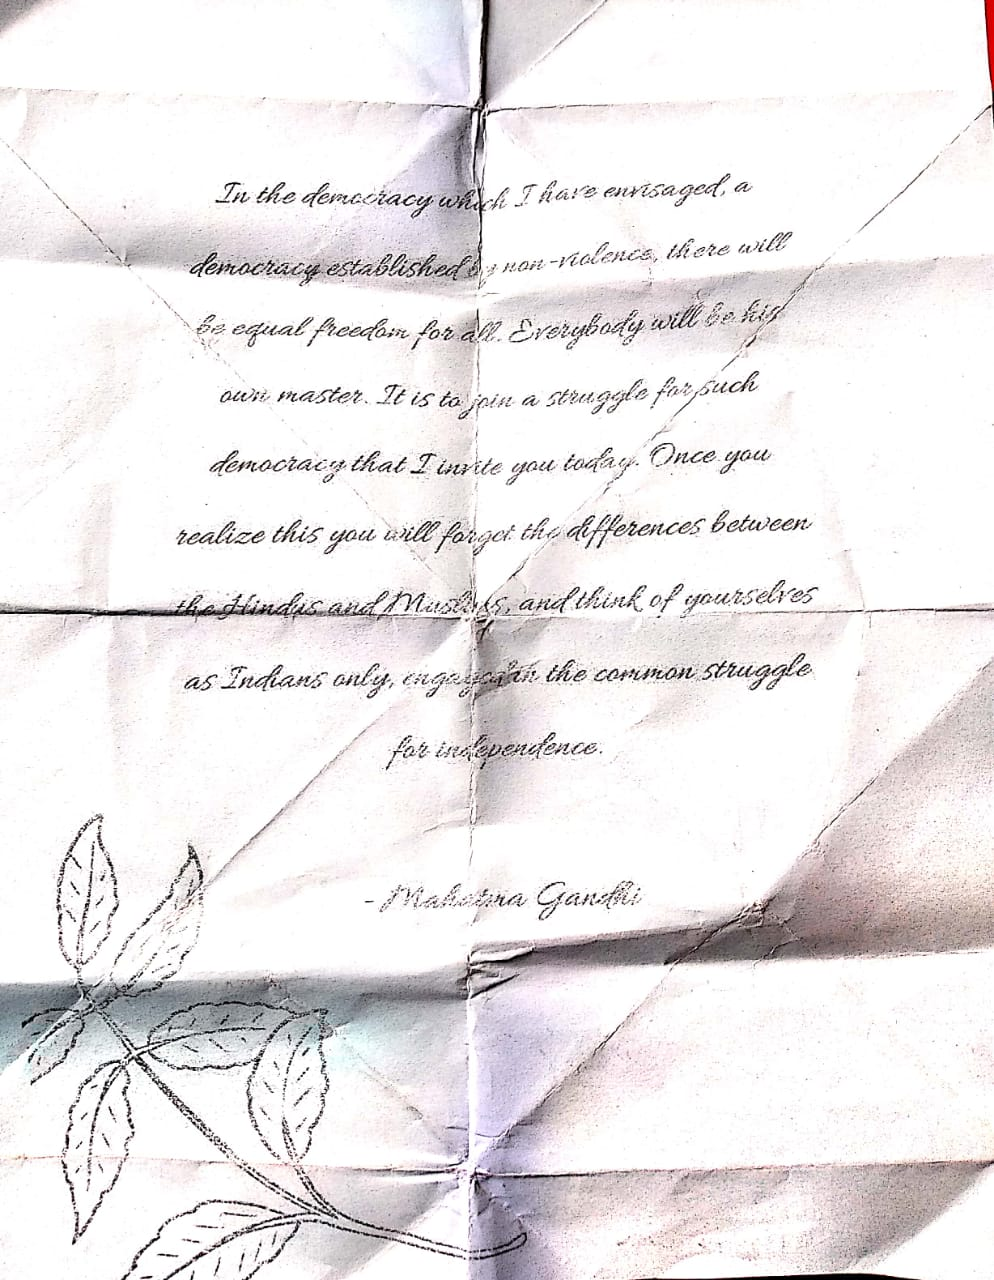 In the democracy which I have envisaged, a
democracy established by non-violence, there will
be equal freedom for all. Everybody will be his
own master. It is to join a struggle for such
democracy that I invite you today. Once you
realize this you will forget the differences between
the Hindus and Muslims, and think of yourselves
as Indians only, engaged in the common struggle
for independence.
- Mahatma Gandhi